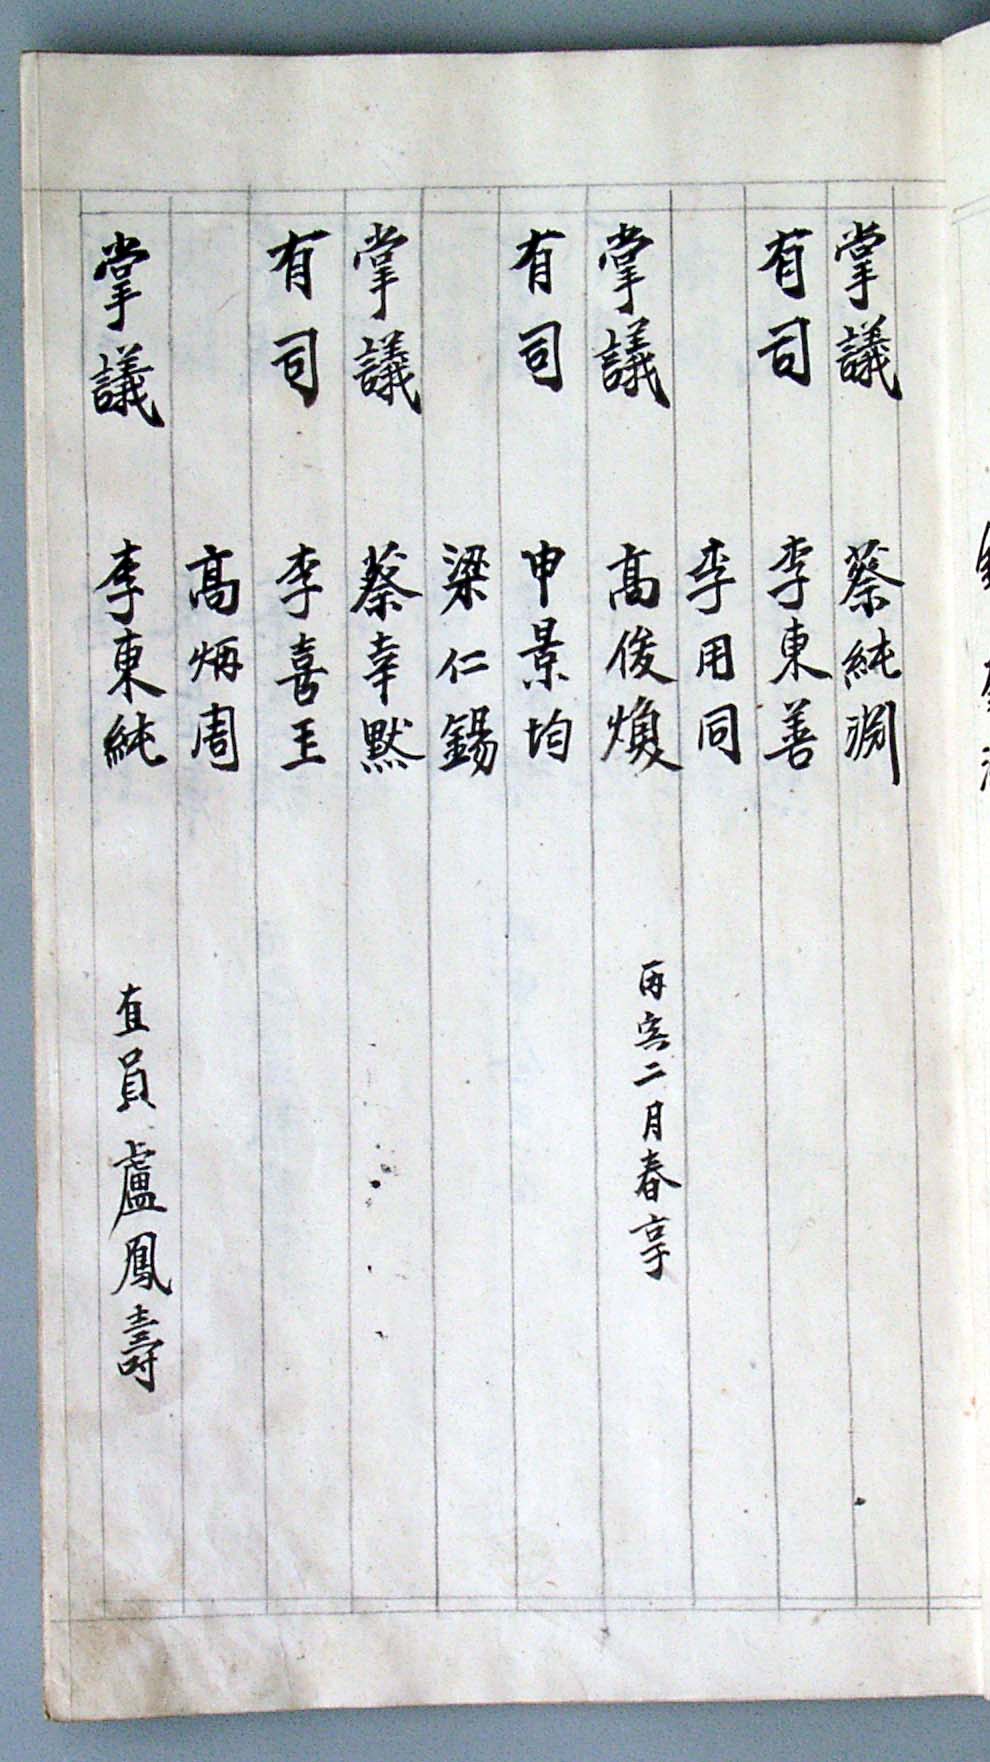 掌議 蔡純淵
有司 李東善
李用同
掌議 高俊煥 丙寅二月春享
有司 申景均
梁仁錫
掌議 蔡幸默
有司 李喜王
高炳周
掌議 李東純 直員 盧鳳壽